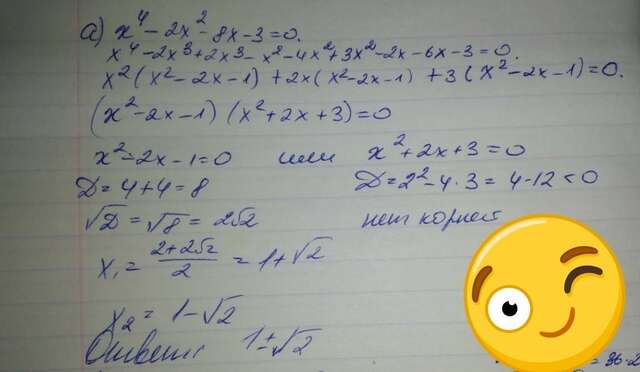 а) x⁴ - 2x² - 8x - 3 = 0.
x⁴ - 2x³ + 2x³ - x² - 4x² + 3x² - 2x - 6x - 3 = 0.
x² (x² - 2x - 1) + 2x (x² - 2x - 1) + 3 (x² - 2x - 1) = 0.
(x² - 2x - 1) (x² + 2x + 3) = 0
x² - 2x - 1 = 0 или x² + 2x + 3 = 0
D = 4 + 4 = 8 D = 2² - 4·3 = 4 - 12 < 0
√D = √8 = 2√2 нет корней
x₁ = (2+2√2)/2 = 1 + √2
x₂ = 1 - √2
Ответ: 1 ± √2